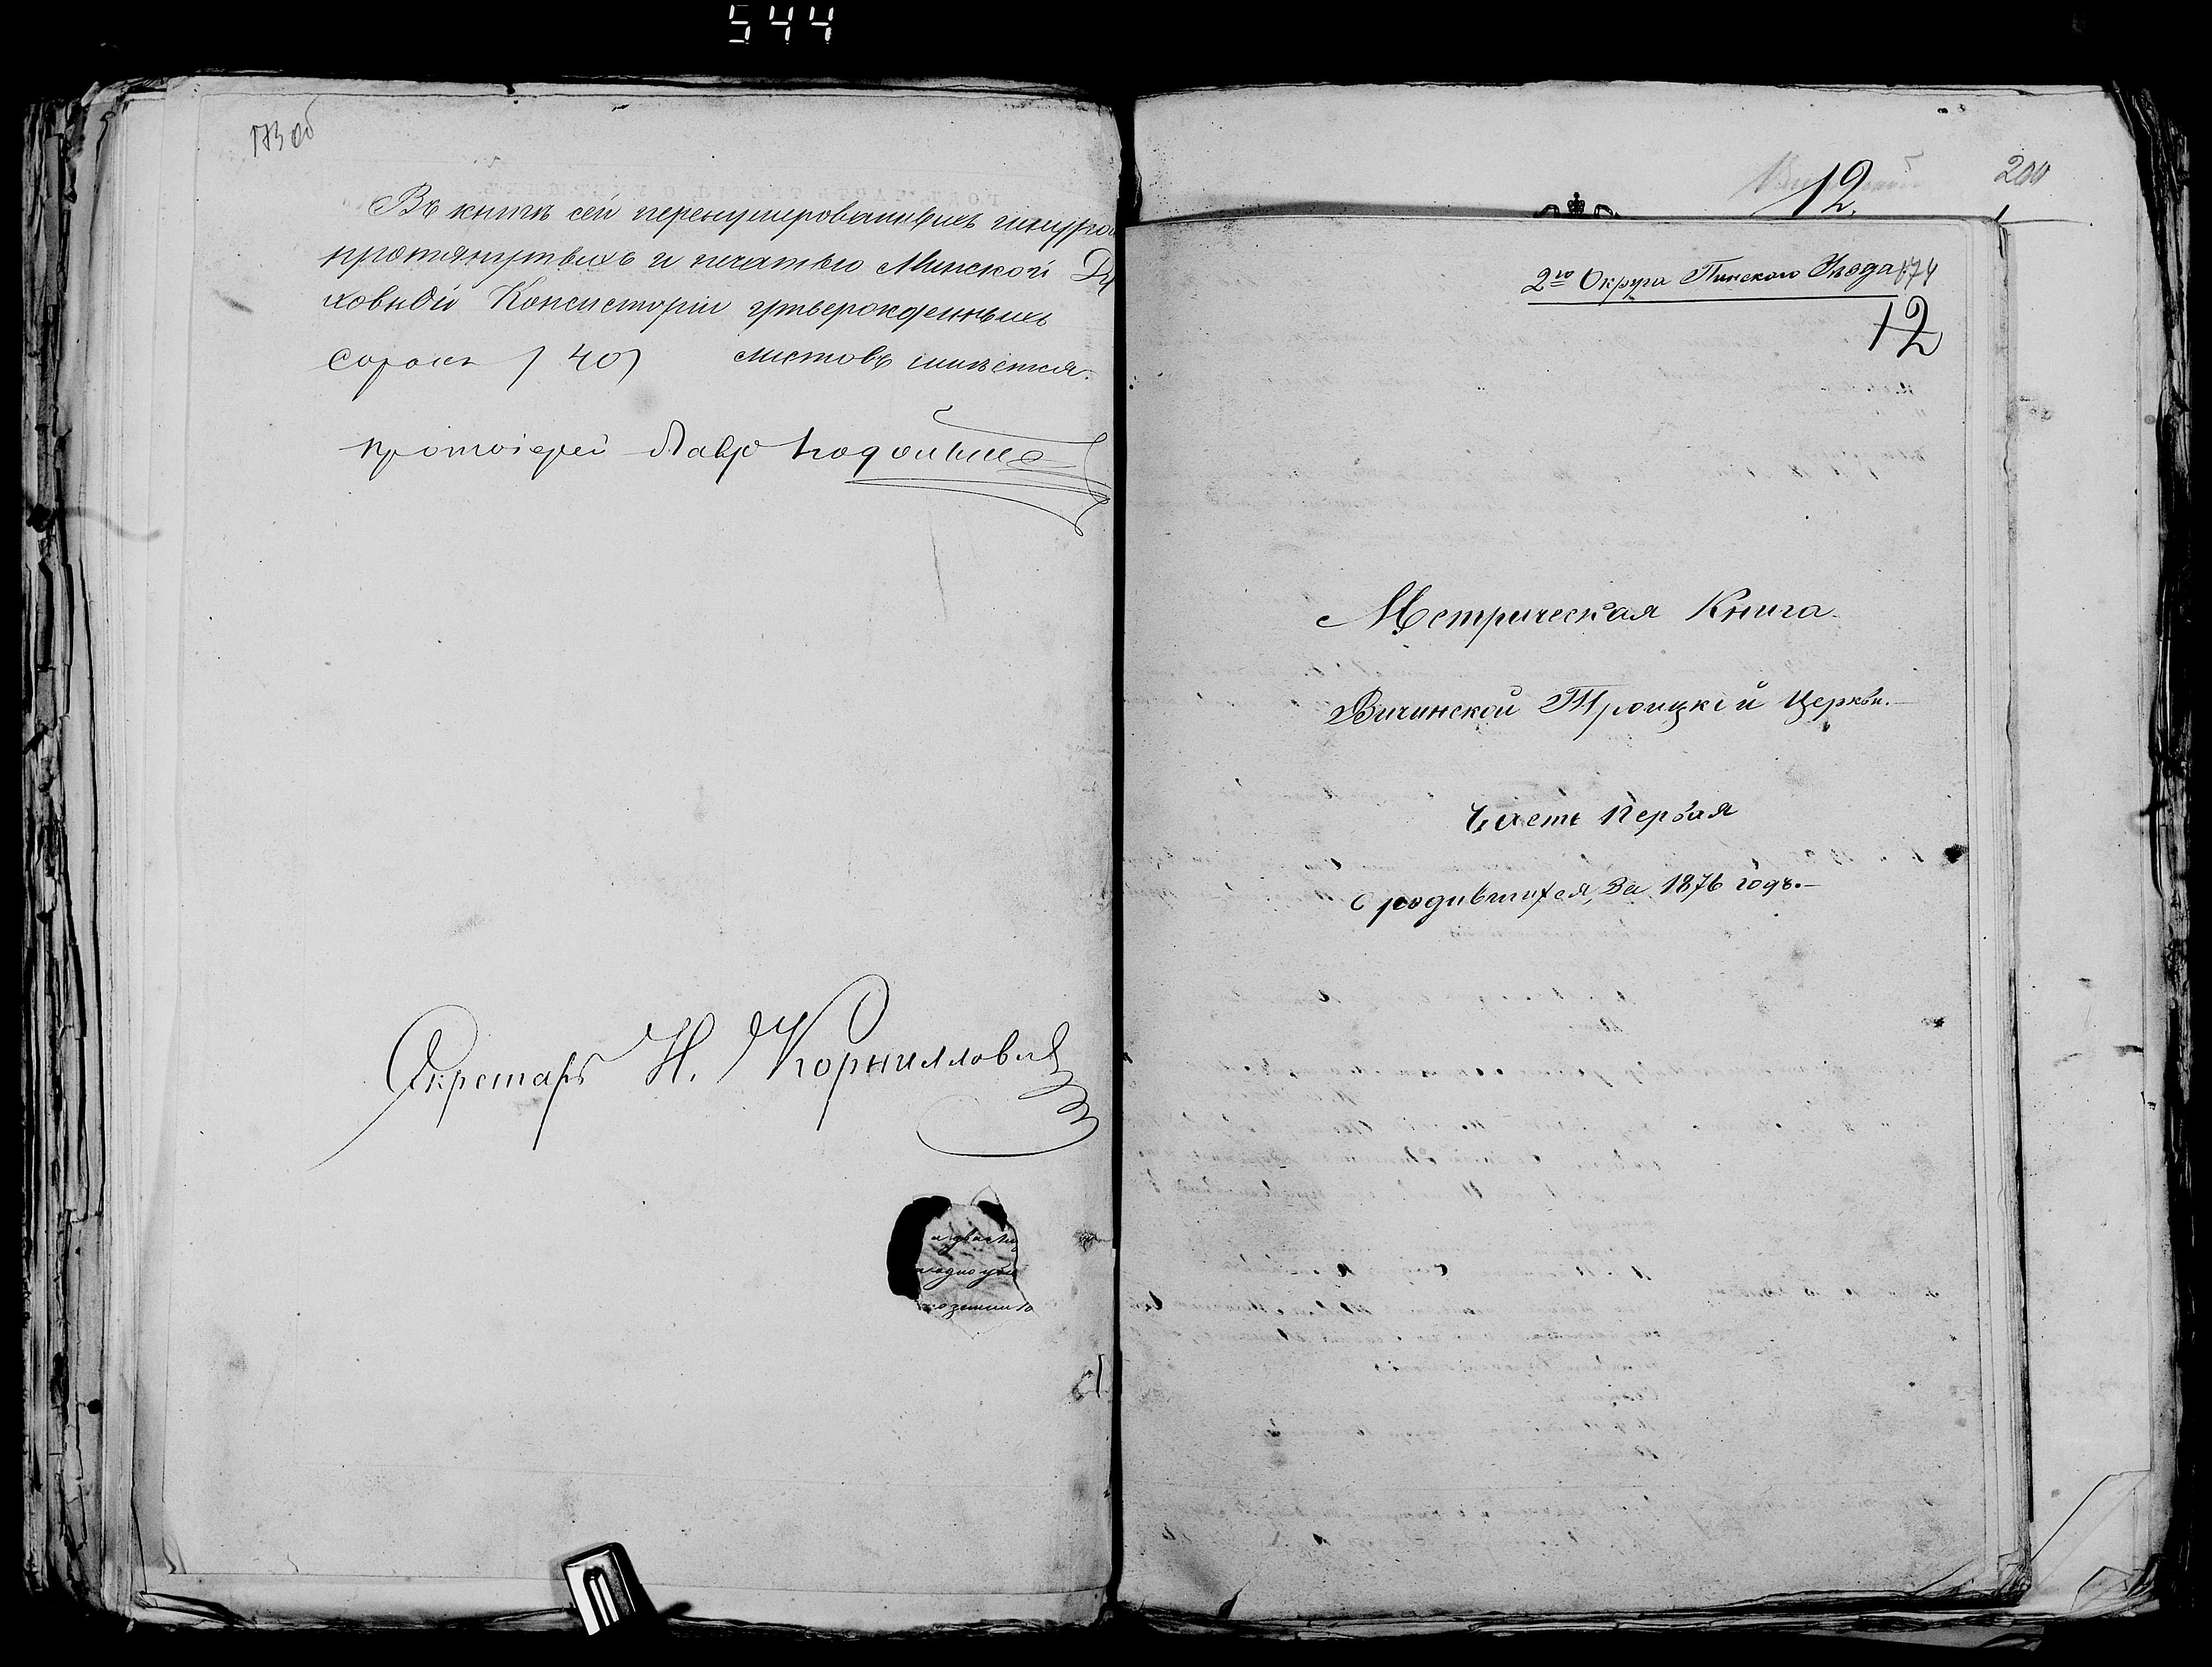 544
173 об
Въ книгѣ сей перенумерованныхъ шнуро
протянутыхъ и печатью Минской Ду
ховной Консисторіи утвержденныхъ
сорокъ (40) листовъ имѣется.
Протоіерей Лавр
Секретарь Н. Корниллович
12.
200
2го Округа Пинского Уѣзда
174
12
Метрическая Книга
Вичинской Троицкой Церкви.
Часть Первая
О родившихся, За 1876 годъ.